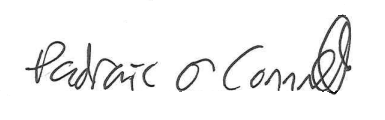 Padraic O Connell